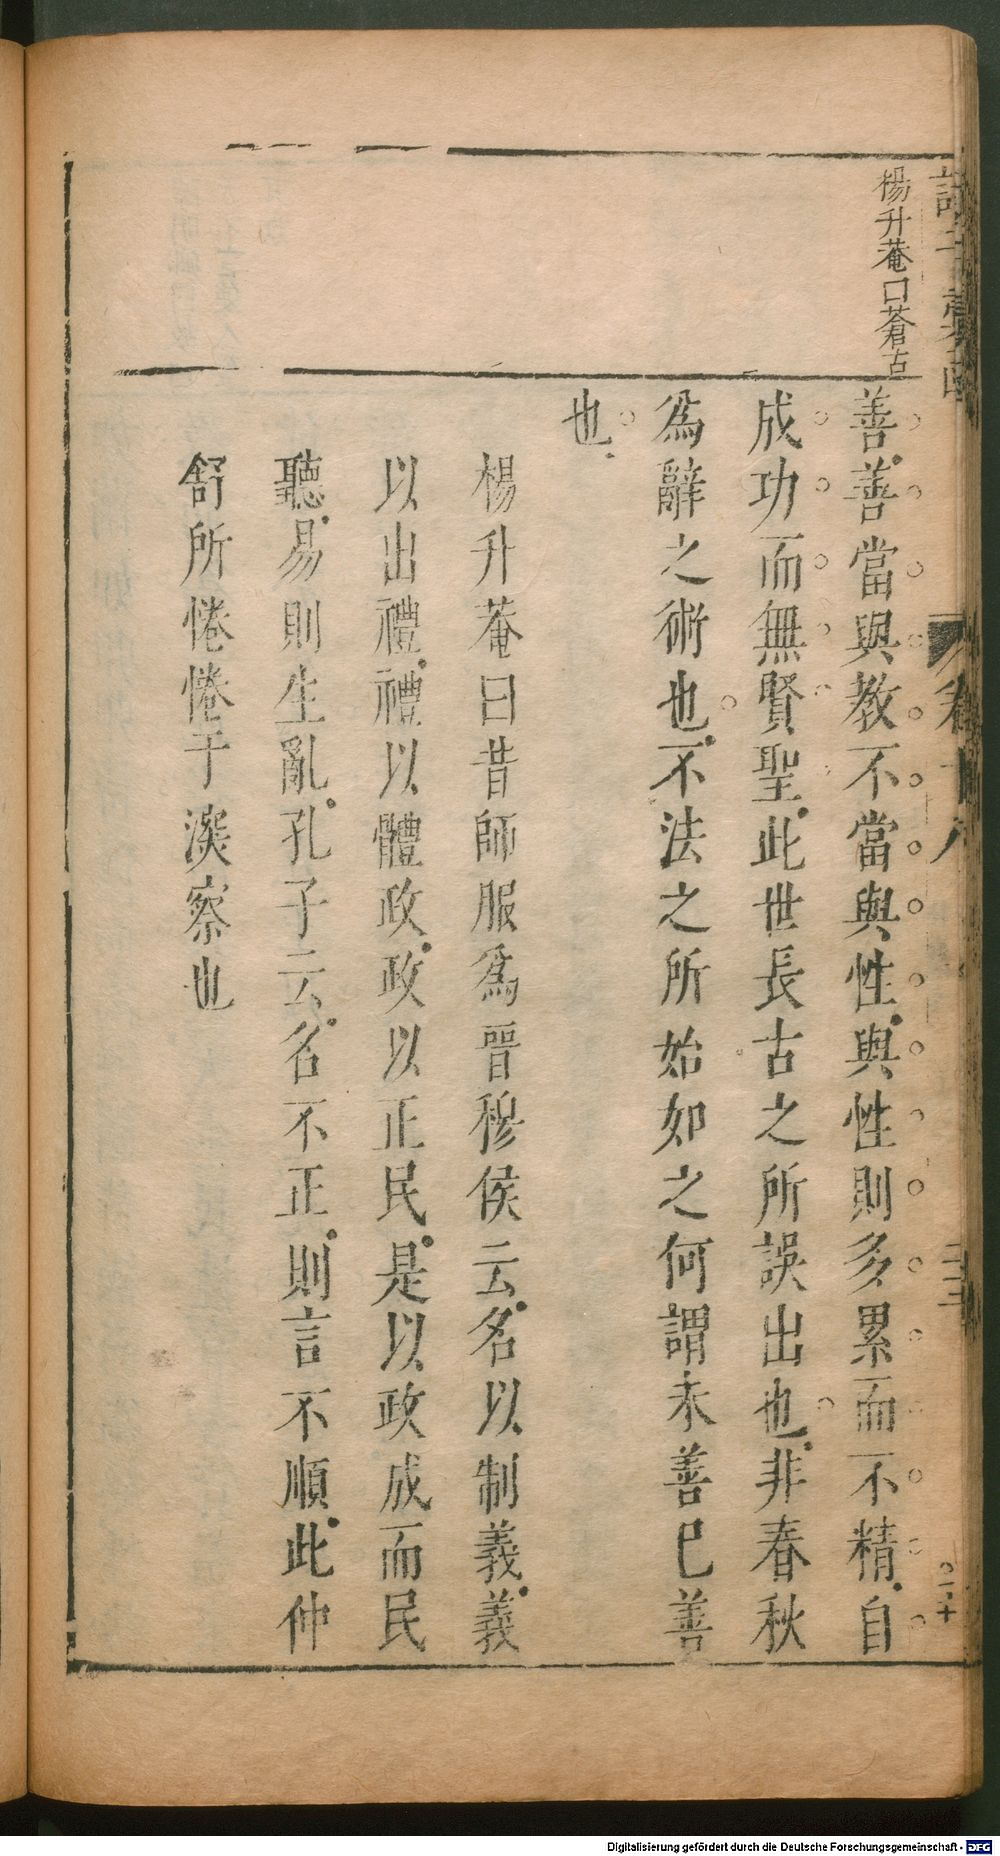 楊升菴曰蒼古
善善當與教不當與性與性則多累而不精自
成功而無賢聖此世長古之所誤出也非春秋
爲辭之術也不法之所始如之何謂未善已善
也
楊升菴曰昔師服爲晉穆侯云名以制義義
以出禮禮以體政政以正民是以政成而民
聽易則生亂孔子云名不正則言不順此仲
舒所惓惓于深察也
Digitalisierung gefördert durch die Deutsche Forschungsgemeinschaft - DFG